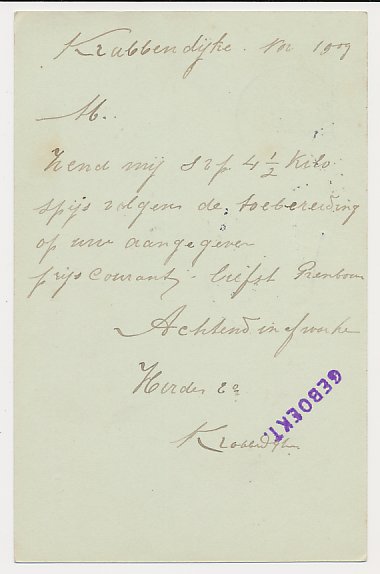 Krabbendijke. Nov 1909
M..
Zend mij svp 4 1/2 Kilo
spijs volgens de toebereiding
op uw aangegeven
prijscourant, liefst
Achtend in afwachte
Herder
GEBOEKT.
Krabbendijke